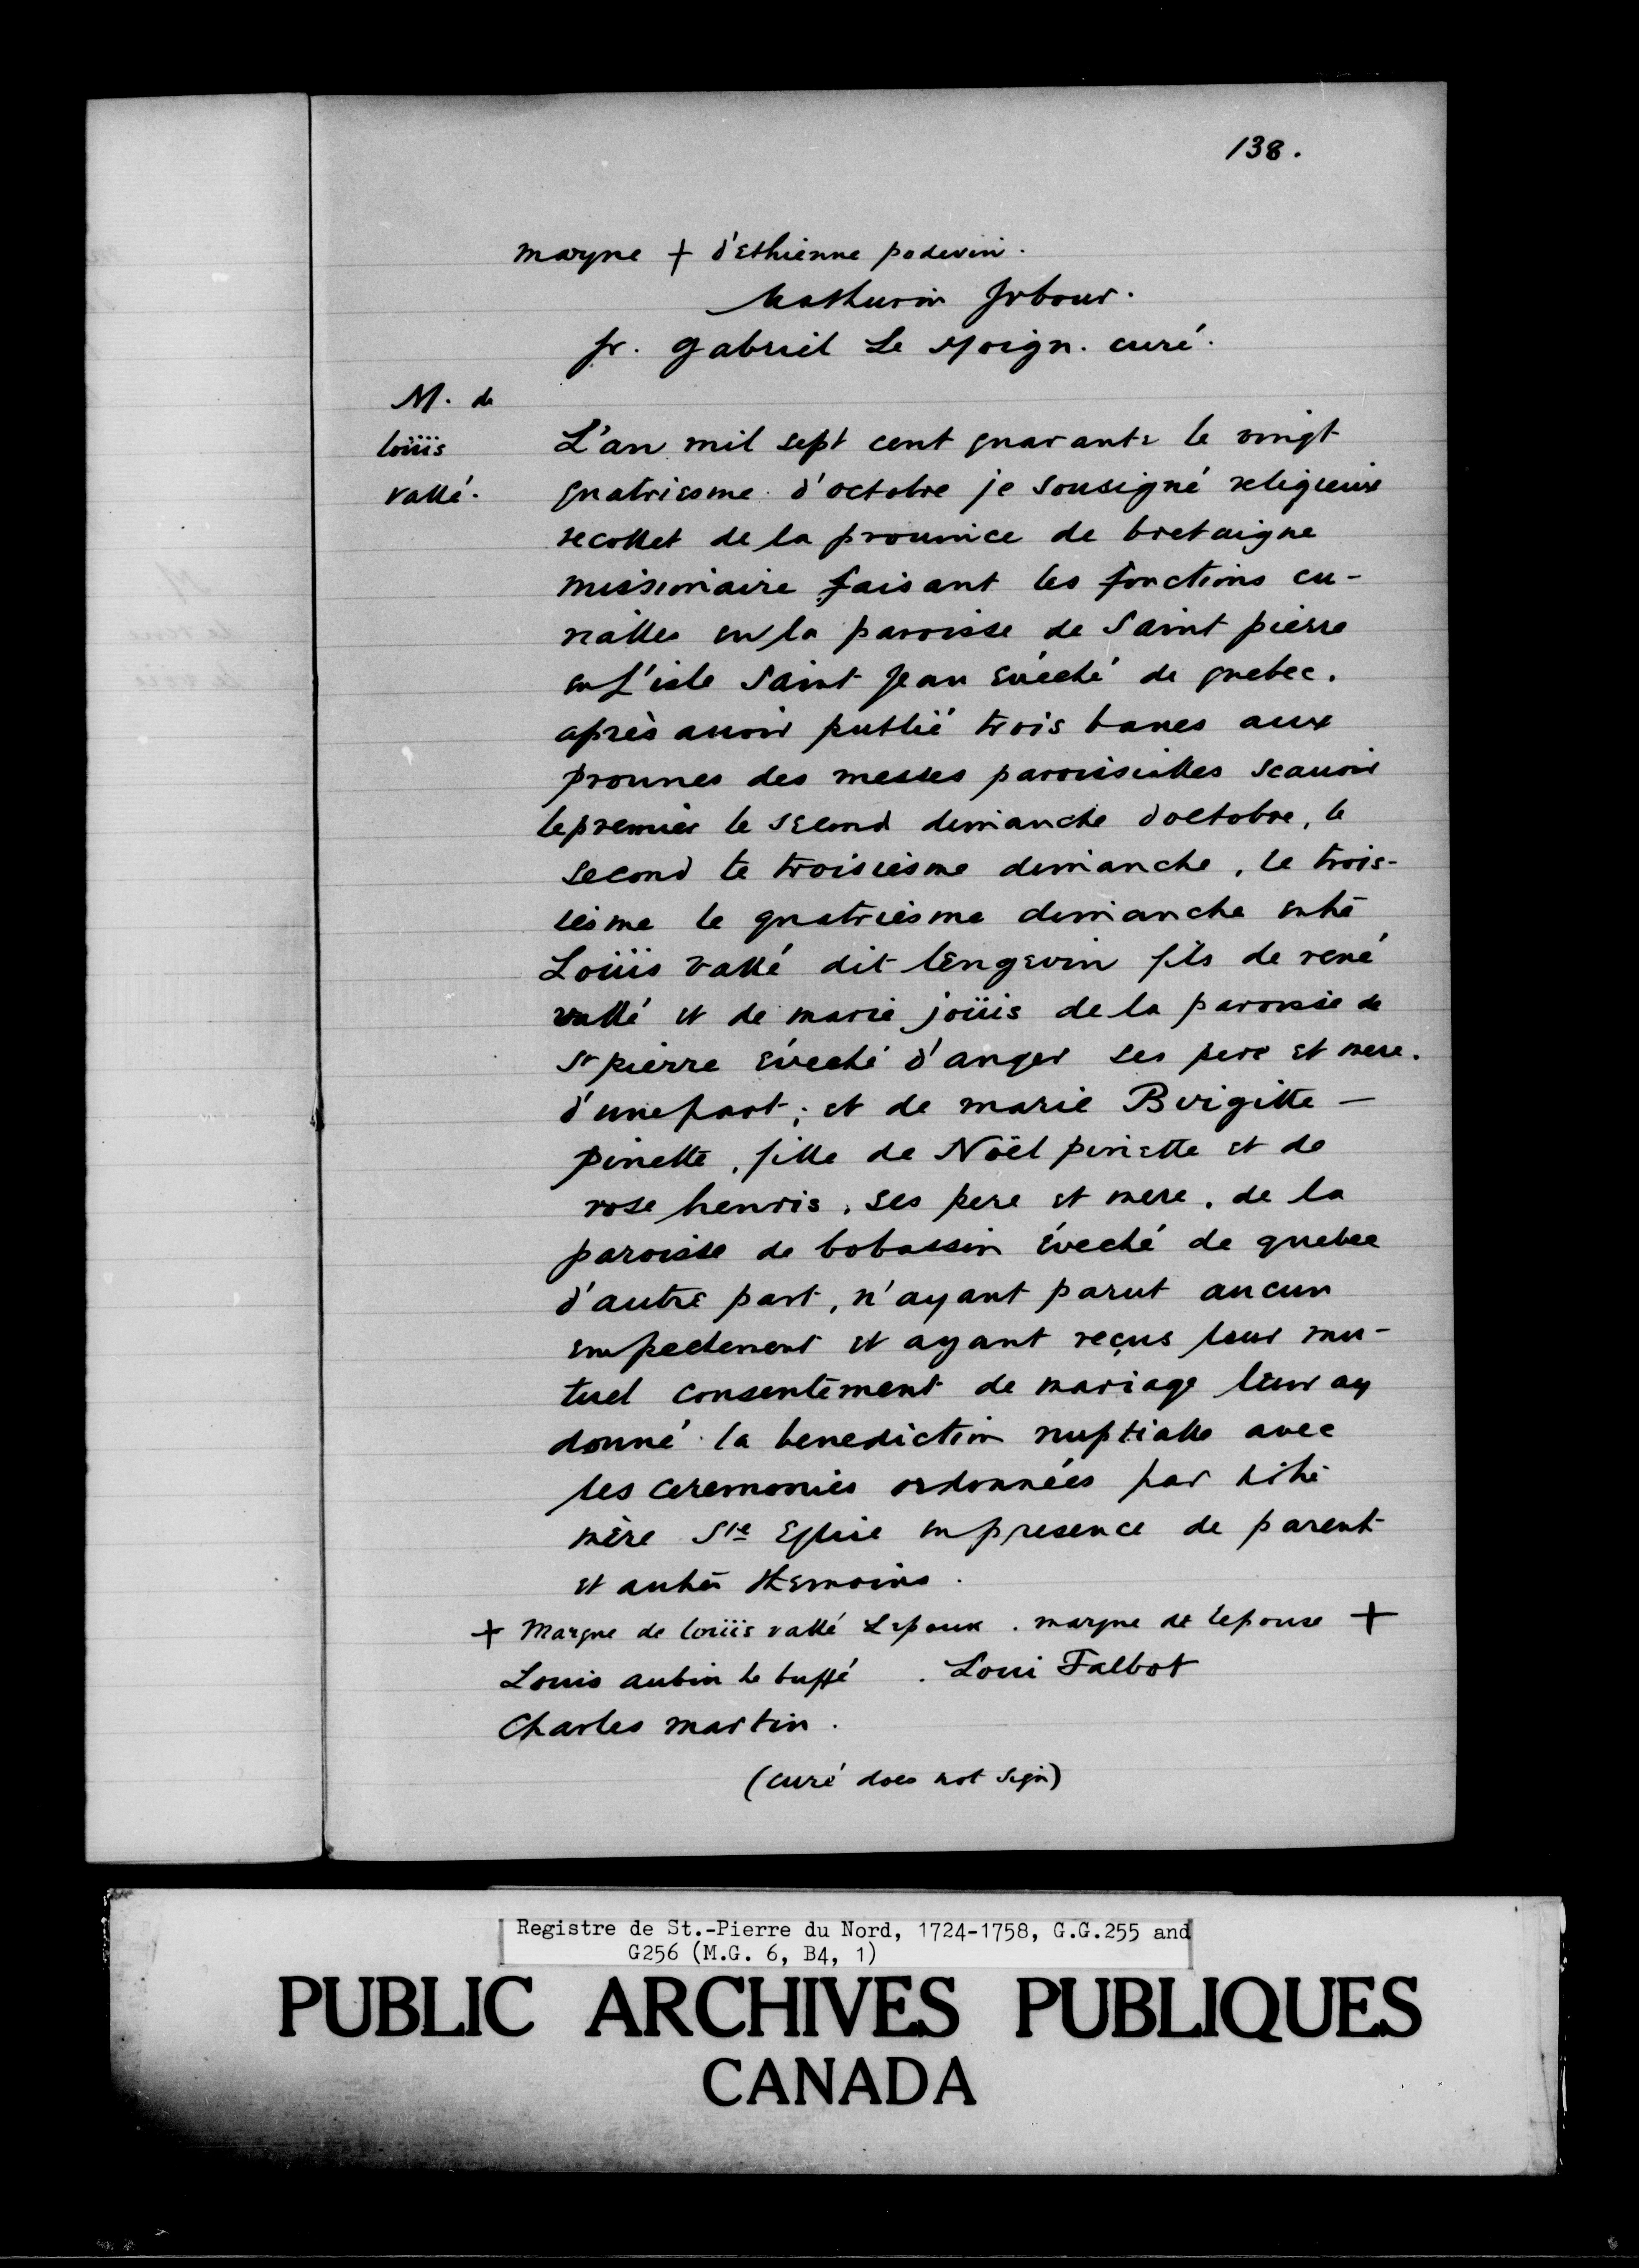 138.
marque + d'Ethienne podevin.
Mathurin Jrbour.
fr. gabriel Le Moign. curé.
M. de
loüis
vallé.
L'an mil sept cent quarante le vingt
quatriesme d'octobre je sousigné religieux
recollet de la prouince de bretaigne
missionaire faisant les fonctions cu-
rialles en la paroisse de Saint pierre
en L'isle Saint Jean evéché de quebec.
après auoir publié trois banes aux
pronnes des messes paroissialles scauoir
le premier le second dimanche d'octobre, le
second le troisiesme dimanche, le trois-
iesme le quatriesme dimanche entre
Loüis vallé dit lengevin fils de rené
vallé et de marie joüis de la paroisse de
St pierre éveché d'anger ses pere et mere.
d'une part; et de marie Brigitte -
pinette, fille de Noël pinette et de
rose henris, ses pere et mere, de la
paroisse de bobassin éveché de quebec
d'autre part, n'ayant parut aucun
empeclement et ayant reçus leur mu-
tuel consentement de mariage leur ay
donné la benediction nuptialle avec
les ceremonies ordonnées par nôtre
mère Ste Eglise en presence de parent
et autres themoins.
+ Marque de loüis vallé Lepoux. marque de lepouse +
Louis aubin le buffé. Loui Talbot
Charles martin.
(curé does not sign)
Registre de St.-Pierre du Nord, 1724-1758, G.G.255 and
G256 (M.G. 6, B4, 1)
PUBLIC ARCHIVES PUBLIQUES
CANADA